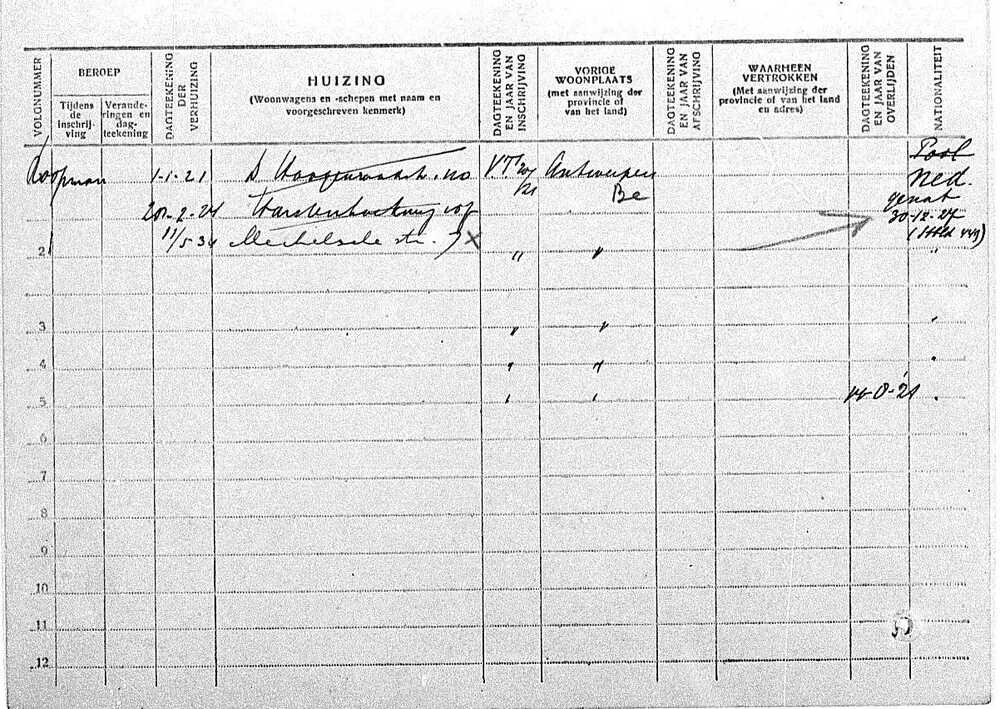 VOLGNUMMER
BEROEP
Tijdens de inschrij-ving
Verande-ringen en dag-teekening
DAGTEEKENING DER VERHUIZING
HUIZING
(Woonwagens en -schepen met naam en
voorgeschreven kenmerk)
DAGTEEKENING EN JAAR VAN INSCHRIJVING
VORIGE
WOONPLAATS
(met aanwijzing der
provincie of
van het land)
DAGTEEKENING EN JAAR VAN AFSCHRIJVING
WAARHEEN
VERTROKKEN
(Met aanwijzing der
provincie of van het land
en adres)
DAGTEEKENING EN JAAR VAN OVERLIJDEN
NATIONALITEIT
Koopman 1-1-21 Antwerpen Pool
Be Ned.
genat
30-12-27
11/5-34 Mechelsche str. 7 x
2 " " "
3 " " "
4 " " "
5 " " "
6
7
8
9
10
11
12